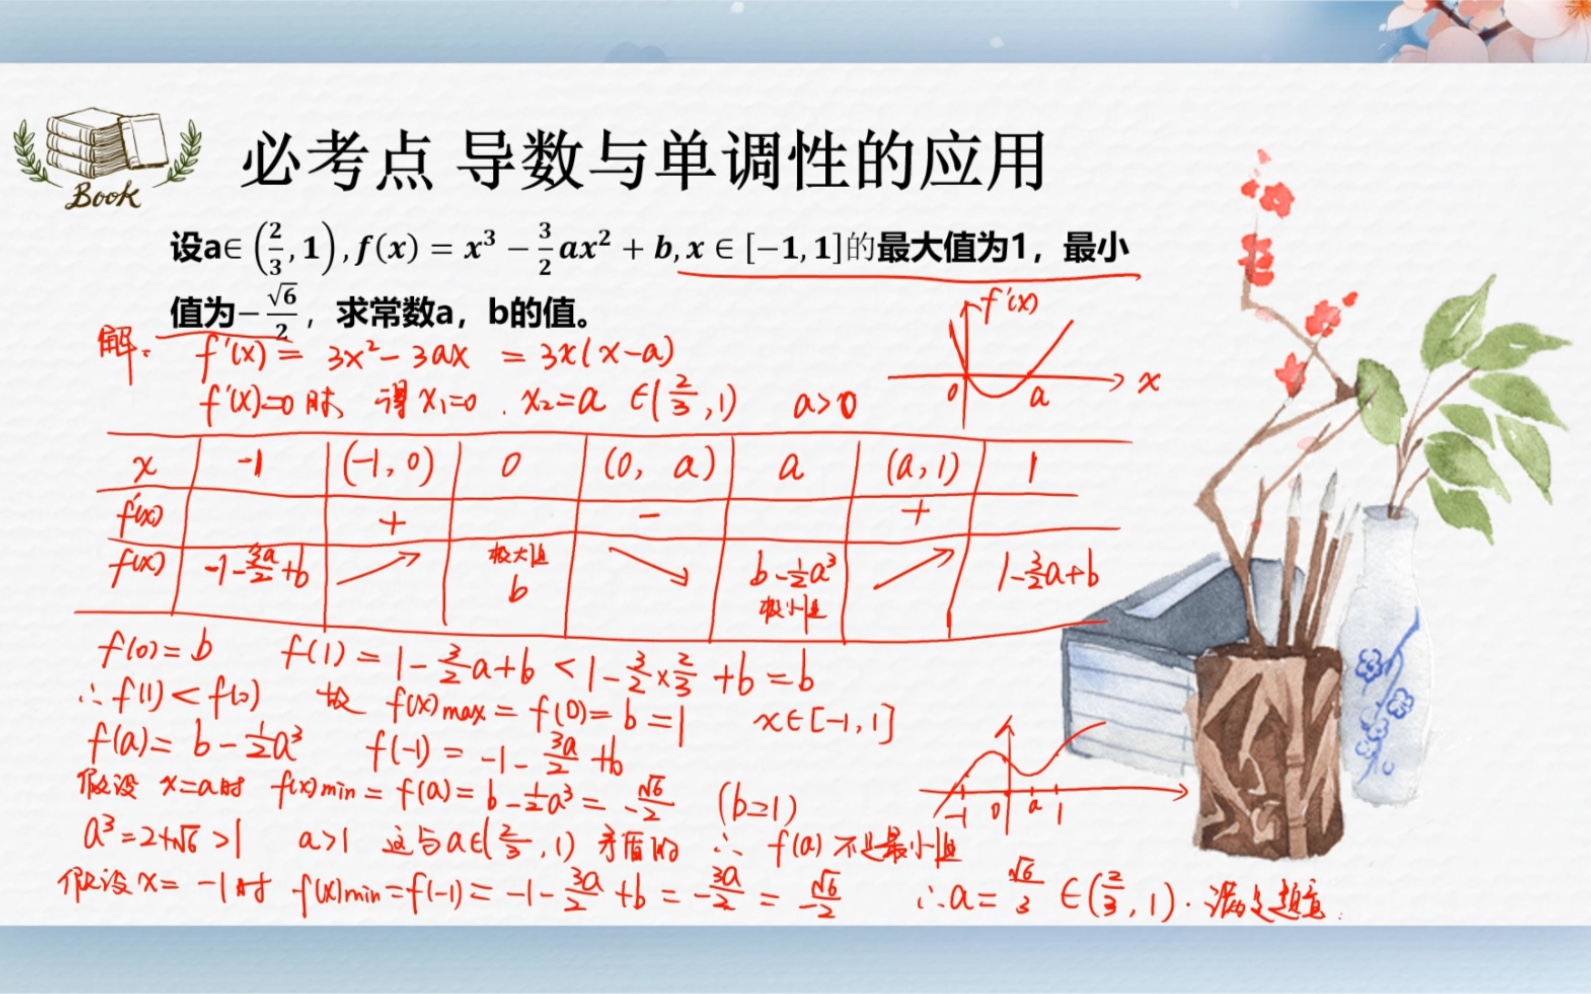 Book
必考点 导数与单调性的应用
设a∈(2/3,1),f(x)=x³−3/2ax²+b,x∈[−1,1]的最大值为1，最小
值为−√6/2，求常数a，b的值。
解: f'(x)=3x²-3ax =3x(x-a)
f'(x)
f'(x)=0时, 得x₁=0, x₂=a ∈(2/3,1) a>0
0 a x
x -1 (-1,0) 0 (0, a) a (a,1) 1
f'(x) + - +
f(x) -1-3a/2+b 极大值 b b-1/2a³ 极小值 1-3/2a+b
f(0)=b f(1)=1-3/2a+b<1-3/2×2/3+b=b
∴f(1)<f(0) 故 f(x)max=f(0)=b=1 x∈[-1,1]
f(a)=b-1/2a³ f(-1)=-1-3a/2+b
假设 x=a时 f(x)min=f(a)=b-1/2a³=-√6/2 (b=1)
-1 0 a 1
a³=2+√6>1 a>1 这与a∈(2/3,1)矛盾的 ∴ f(a)不是最小值
假设x=-1时 f(x)min=f(-1)=-1-3a/2+b=-3a/2=-√6/2 ∴a=√6/3∈(2/3,1).满足题意.